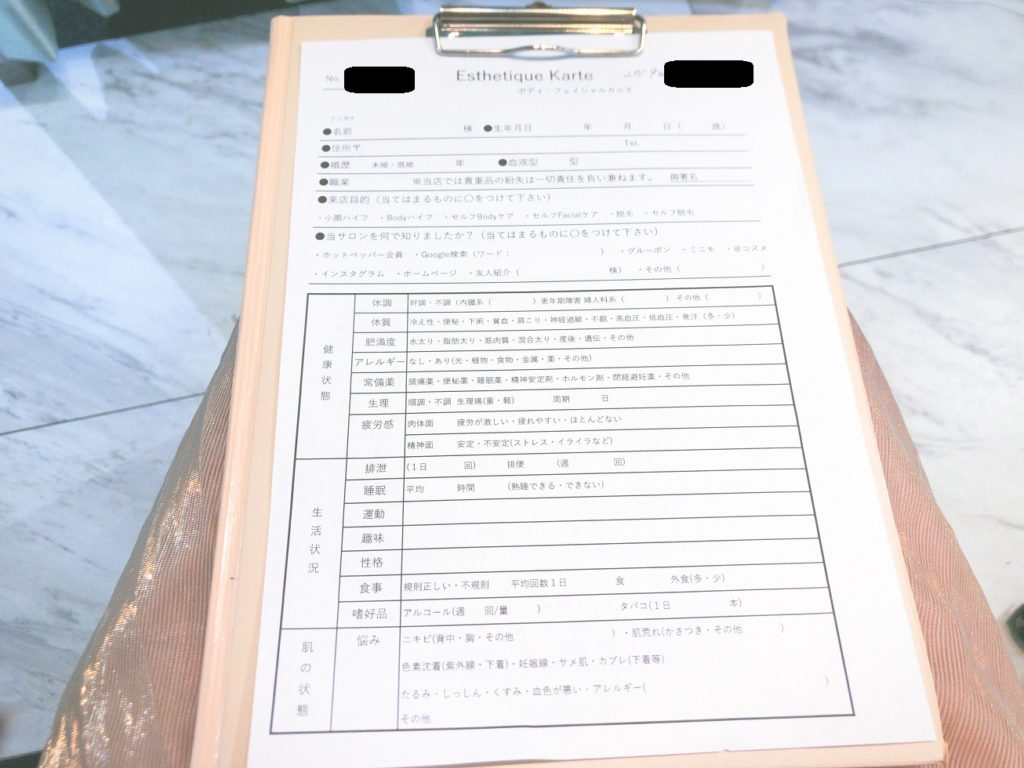 No.
Esthetique Karte
ボディ・フェイシャルカルテ
フリガナ
●名前 様 ●生年月日 年 月 日（ 歳）
●住所〒 Tel.
●婚歴 未婚・既婚 年 ●血液型 型
●職業 ※当店では貴重品の紛失は一切責任を負い兼ねます。 御署名
●来店目的（当てはまるものに〇をつけて下さい）
・小顔ハイフ ・Bodyハイフ ・セルフBodyケア ・セルフFacialケア ・脱毛 ・セルフ脱毛
●当サロンを何で知りましたか？（当てはまるものに〇をつけて下さい）
・ホットペッパー会員 ・Google検索（ワード： ） ・グルーポン ・ミニモ ・@コスメ
・インスタグラム ・ホームページ ・友人紹介（ 様） ・その他（ ）
健康状態
体調 好調・不調（内臓系（ ）更年期障害 婦人科系（ ） その他（ ）
体質 冷え性・便秘・下痢・貧血・肩こり・神経過敏・不眠・高血圧・低血圧・発汗（多・少）
肥満度 水太り・脂肪太り・筋肉質・混合太り・産後・遺伝・その他
アレルギー なし・あり(光・植物・食物・金属・薬・その他)
常備薬 頭痛薬・便秘薬・睡眠薬・精神安定剤・ホルモン剤・閉経避妊薬・その他
生理 順調・不調 生理痛(重・軽) 周期 日
疲労感 肉体面 疲労が激しい・疲れやすい・ほとんどない
精神面 安定・不安定(ストレス・イライラなど)
生活状況
排泄 (1日 回) 排便 (週 回)
睡眠 平均 時間 (熟睡できる・できない)
運動
趣味
性格
食事 規則正しい・不規則 平均回数1日 食 外食(多・少)
嗜好品 アルコール(週 回/量 ) タバコ(1日 本)
肌の状態
悩み ニキビ(背中・胸・その他 ) ・肌荒れ(かさつき・その他 )
色素沈着(紫外線・下着)・妊娠線・サメ肌・カブレ(下着等)
たるみ・しっしん・くすみ・血色が悪い・アレルギー( )
その他